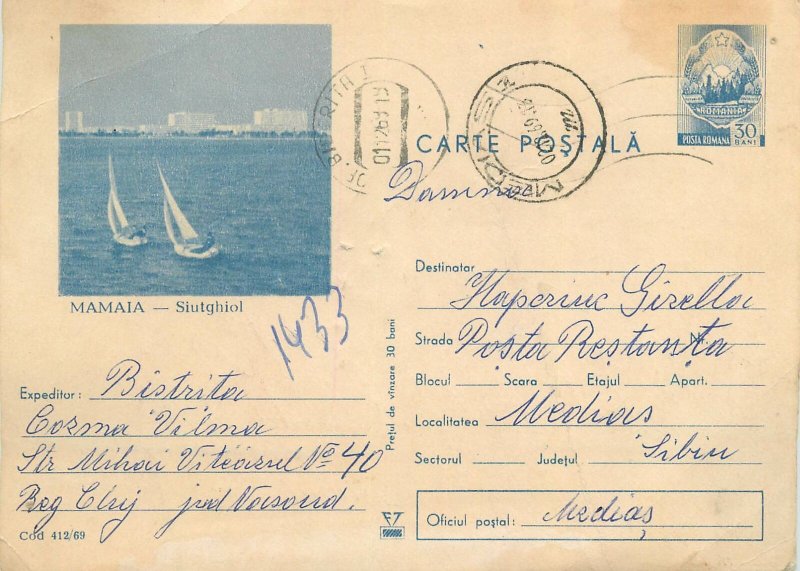 MAMAIA — Siutghiol
CARTE POȘTALĂ
ROMANIA
POSTA ROMANA
30
BANI
MEDIAȘ
Doamnei
Destinatar
Gizella
Strada Posta Restanta Nr.
Blocul Scara Etajul Apart.
Localitatea Medias
Sectorul Județul Sibiu
Oficiul poștal: Mediaș
1433
Prețul de vînzare 30 bani
Expeditor: Bistrita
Cozma Vilma
Str Mihai Viteazul No 40
Reg Cluj jud Nasoud.
Cod 412/69